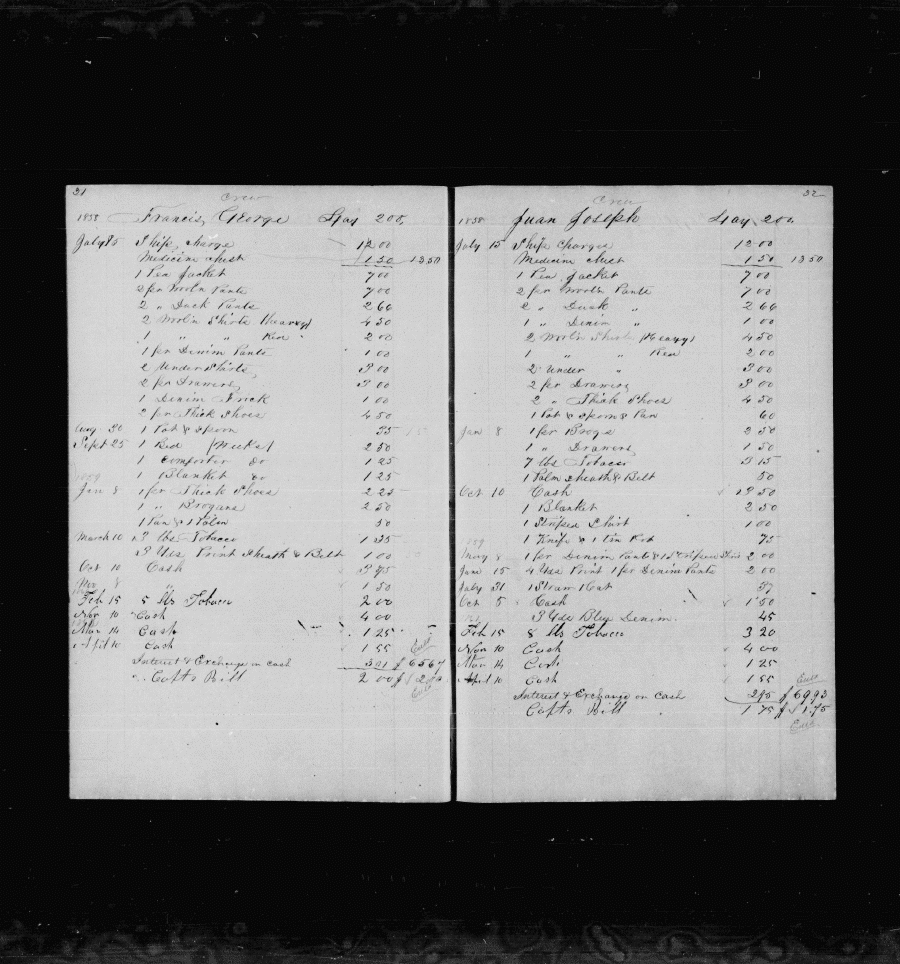 31
Crew
1858 Francis George Lay 200
July 15 Ship charge 12 00
Medicine chest 1 50 13 50
1 Pea Jacket 7 00
2 pr Wool'n Pants 7 00
2 " Duck Pants 2 66
2 Wool'n Shirts (Heavy) 4 50
1 " " Red 2 00
1 pr Denim Pants 1 00
2 Under Shirts 3 00
2 pr Drawers 3 00
1 Denim Frock 1 00
2 pr Thick Shoes 4 50
Aug 30 1 Pot & Spoon 35
Sept 25 1 Bed 2 50
1 Comforter Do 1 25
1 Blanket Do 1 25
1859
Jan 8 1 pr Thick Shoes 2 25
1 " Brogans 2 50
1 Pan & 1 Palm 50
March 10 3 lbs Tobacco 1 35
3 Yds Print Sheath & Belt 1 00
Oct 10 Cash 3 75
Nov 8 " 1 50
Feb 15 5 lbs Tobacco 2 00
Nov 10 Cash 4 00
Mar 14 Cash 1 25
April 10 Cash 1 55
Interest & Exchange on Cash 3 01 65 67
" Capts Bill 2 00
32
Crew
1858 Juan Joseph Lay 200
July 15 Ship Charges 12 00
Medicine chest 1 50 13 50
1 Pea Jacket 7 00
2 pr Wool'n Pants 7 00
2 " Duck " 2 66
1 " Denim " 1 00
2 Wool'n Shirts (Heavy) 4 50
1 " " Red 2 00
2 Under " 3 00
2 pr Drawers 3 00
2 " Thick Shoes 4 50
1 Pot & Spoon & Pan 60
Jan 8 1 pr Brogs 2 50
1 " Drawers 1 50
7 lbs Tobacco 3 15
1 Palm Sheath & Belt 50
Oct 10 Cash 19 50
1 Blanket 2 50
1 Striped Shirt 1 00
1859 1 Knife & 1 Tin Pot 75
May 8 1 pr Denim Pants & 1 Striped Shirt 2 00
June 15 4 Yds Print 1 pr Denim Pants 2 00
July 31 1 Straw Hat 37
Oct 5 Cash 1 50
3 Yds Blue Denim 45
Feb 15 8 lbs Tobacco 3 20
Nov 10 Cash 4 00
Mar 14 Cash 1 25
April 10 Cash 1 55
Interest & Exchange on Cash 2 95 69 93
Capts Bill 1 75 1 75